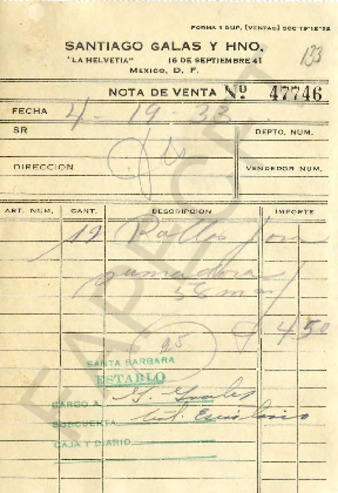 FORMA 1 DUP. (VENTAS) 50C-19-12-32
133
SANTIAGO GALAS Y HNO.
"LA HELVETIA" 16 DE SEPTIEMBRE 41
MEXICO, D. F.
NOTA DE VENTA Nº 47746
FECHA 4-19-33
SR DEPTO. NUM.
DIRECCION VENDEDOR NUM.
ART. NUM. CANT. DESCRIPCION IMPORTE
12 Rollos para
sumadora
56 m/m
4.50
SANTA BARBARA
ESTABLO
CARGO A G. Grales
SUBCUENTA
CAJA Y DIARIO